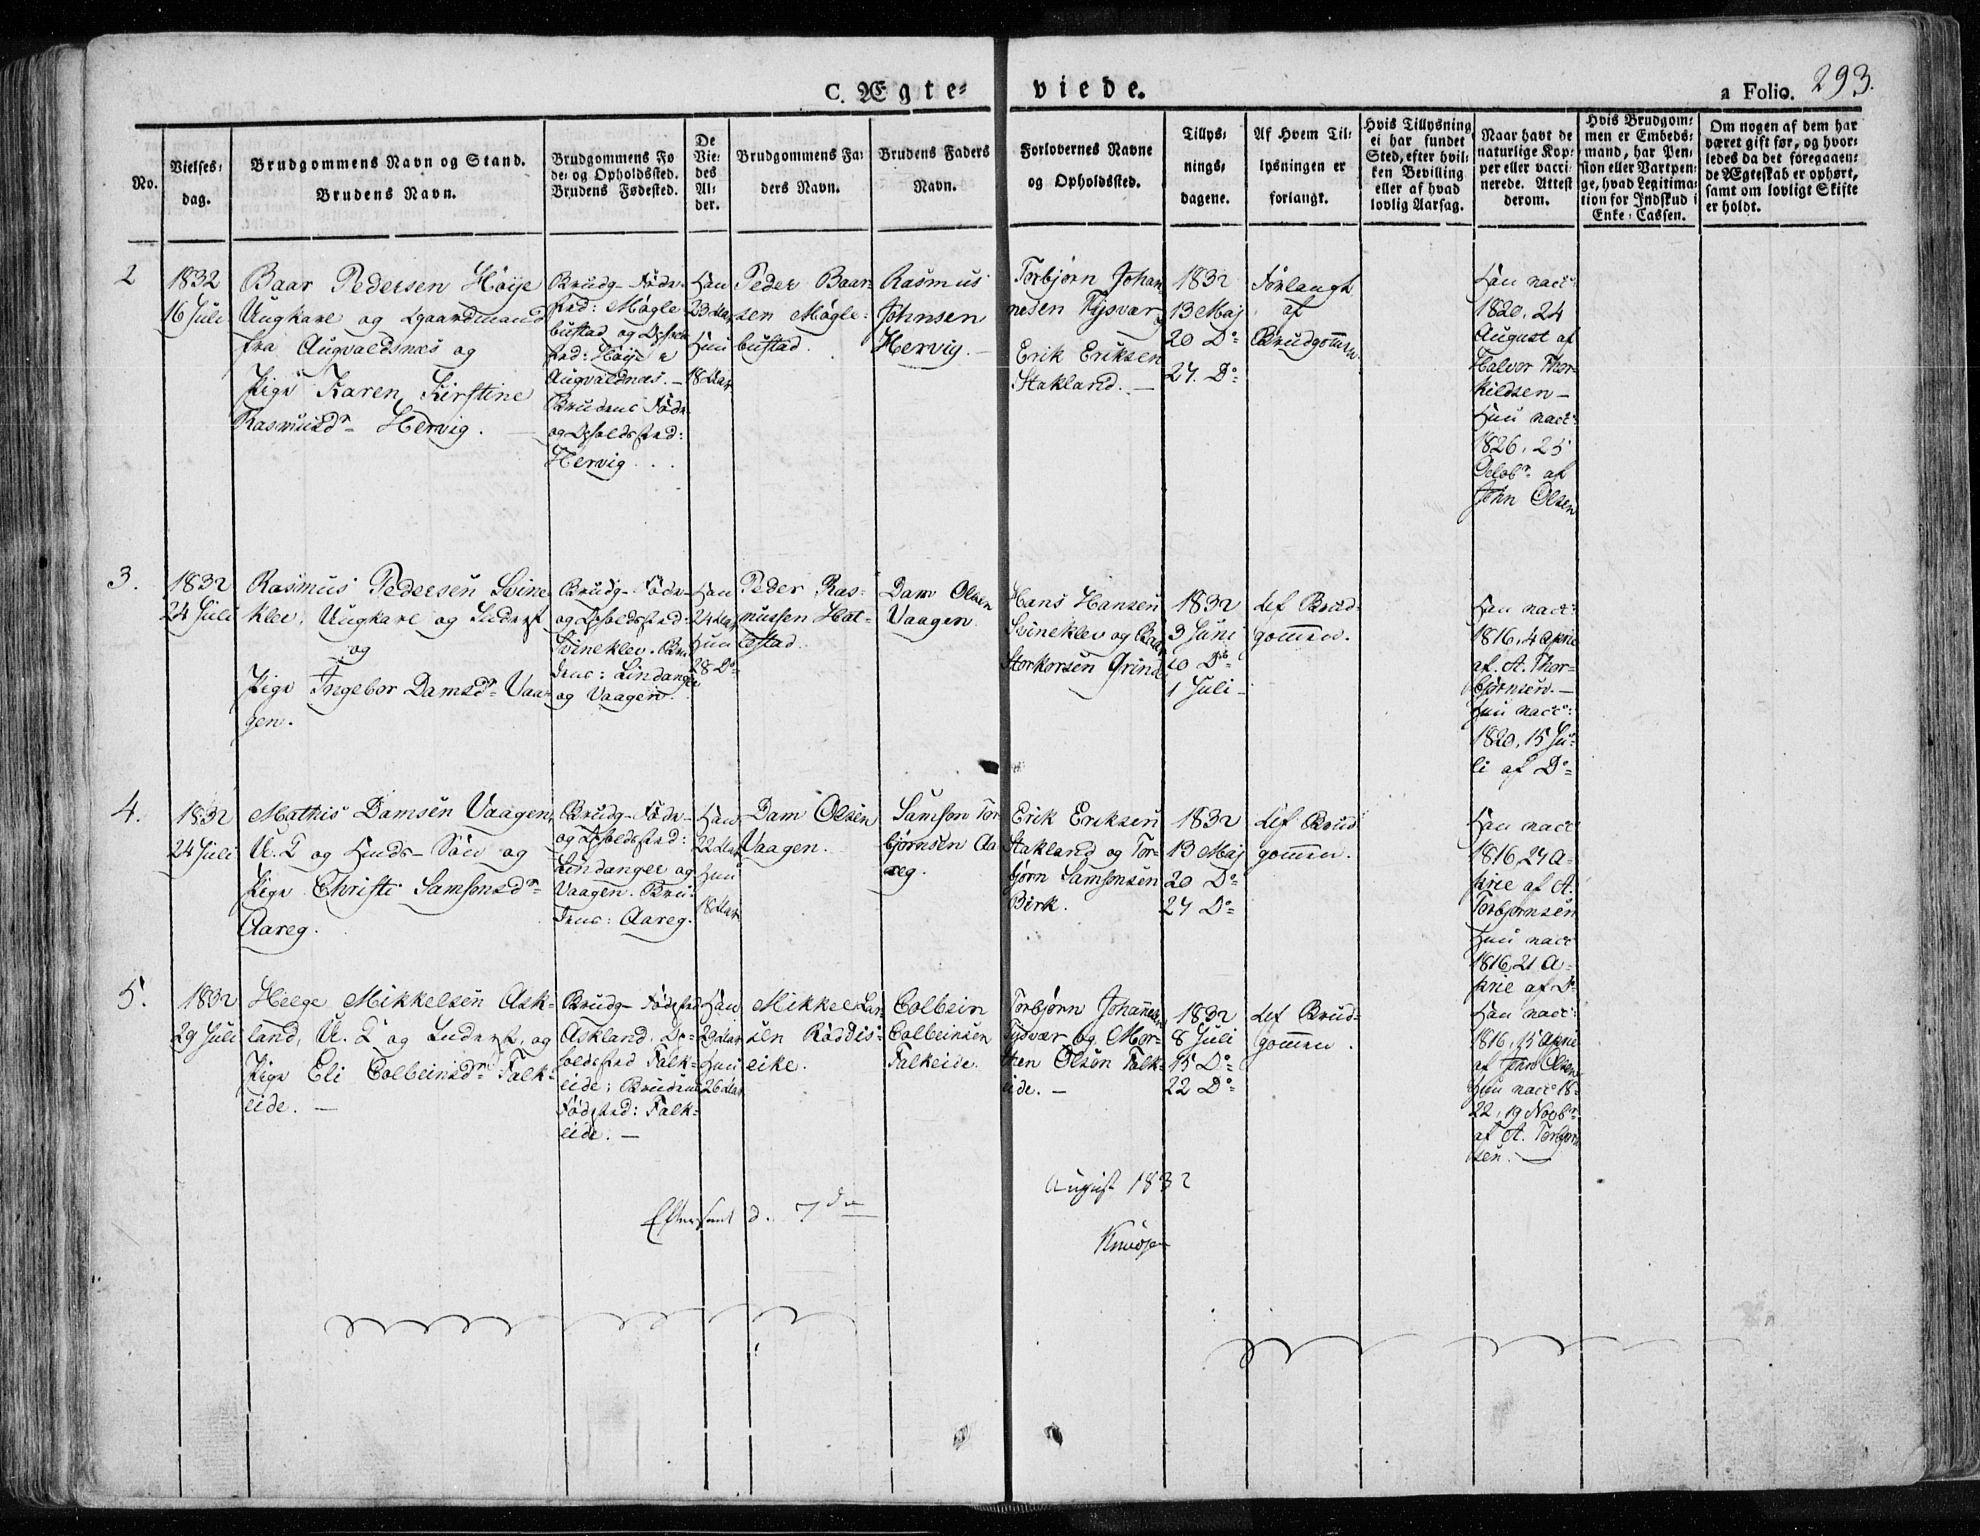 C. Ægte=viede.
a Folio. 293.
No.
Vielses-
dag.
Brudgommens Navn og Stand.
Brudens Navn.
Brudgommens Fø
de- og Opholdssted.
Brudens Fødested.
De
Vie-
des
Al-
der.
Brudgommens Fa-
ders Navn.
Brudens Faders
Navn.
Forlovernes Navne
og Opholdssted.
Tillys-
nings-
dagene.
Af Hvem Til-
lysningen er
forlangt.
Hvis Tillysning
ei har fundet
Sted, efter hvil-
ken Bevilling
eller af hvad
lovlig Aarsag.
Naar havt de
naturlige Kop-
per eller vacci-
nerede. Attest
derom.
Hvis Brudgom-
men er Embeds-
mand, har Pen-
sion eller Vartpen-
ge, hvad Legitima-
tion for Indskud i
Enke-Cassen.
Om nogen af dem har
været gift før, og hvor-
ledes da det foregaaen-
de Ægteskab er ophørt,
samt om lovligt Skifte
er holdt.
2
1832
16 Juli
Baar Pedersen Høije
Ungkarl og Gaardmand
fra Augvaldsnæs og
Pige Karen Kirstine
Rasmusdr Hervig.
Brudg- Føde-
sted: Møgle-
bustad og Ophold-
sted: Høije i
Augvaldnæs. -
Brudens Føde
og Opholdsted:
Hervig...
Han
23 Aar
Hun
18 Aar
Peder Baar-
sen Møgle-
bustad.
Rasmus
Johnsen
Hervig. -
Torbjørn Johan-
nesen Tysvær
Erik Eriksen
Stakland. -
1832
13 Maj
20 Do
27. Do
Forlangt
af
Brudgommen
Han vacc:
1820, 24
August af
Halvor Thor-
kildsen -
Hun vacc:
1826, 25
Octobr af
John Olsen
3.
1832
24 Juli
Rasmus Pedersen Svine-
klev, Ungkarl og Inderst
og
Pige Ingebor Damsdr Vaa-
gen.
Brudg- Føde-
og Opholdsted:
Svineklev. Bru-
dens: Lindanger
og Vaagen.
Han
24 Aar
Hun
28 Do
Peder Ras-
mussen Hat-
lestad.
Dam Olsen
Vaagen
Hans Hansen
Svineklev og Baar
Storkorsen Grinde
1832
3 Juni
10 Do
1 Juli
Af Brud-
gommen.
Han vacc:
1816, 4 April
af A. Thor-
bjørnsen. -
Hun vacc:
1820, 15 Ju-
li af Do
4.
1832
24 Juli
Mathis Damsen Vaagen,
U. K og Huus- Søn og
Pige Christi Samsonsdr
Aareg.
Brudg- Føde-
og Opholdsted:
Lindanger og
Vaagen. Bru-
dens: Aareg.
Han
22 Aar
Hun
18 Aar
Dam Olsen
Vaagen.
Samson Tor-
bjørnsen Aa-
reg.
Erik Eriksen
Stakland og Tor-
bjørn Samsonsen
Birk.
1832
13 Maj
20 Do
27 Do
Af Brud-
gommen.
Han vacc
1816, 27 A-
pril af A.
Torbjørnsen
Hun vacc
1816, 21 A-
pril af Do
5.
1832
29 Juli
Helge Mikkelsen Ask-
land, U. K og Inderst, og
Pige Eli Colbeinsdr Falk-
eide. -
Brudg- Fødested
Askland, Op-
holdsted Falk-
eide; Brudens
Fødsted: Falk-
eide. -
Han
29 Aar
Hun
26 Aar
Mikkel Lar-
sen Røddis-
eike.
Colbein
Colbeinsen
Falkeide.
Torbjørn Johannesen
Tysvær og Mor-
ten Olsen Falk-
eide. -
1832
8 Juli
15 Do
22 Do
Af Brud-
gommen.
Han vacc:
1816, 15 April
af John Olsen
Hun vacc 18-
22, 19 Novbr
af A. Torbjørn-
sen. -
Efterseet d. 7de August 1832
Knudsen